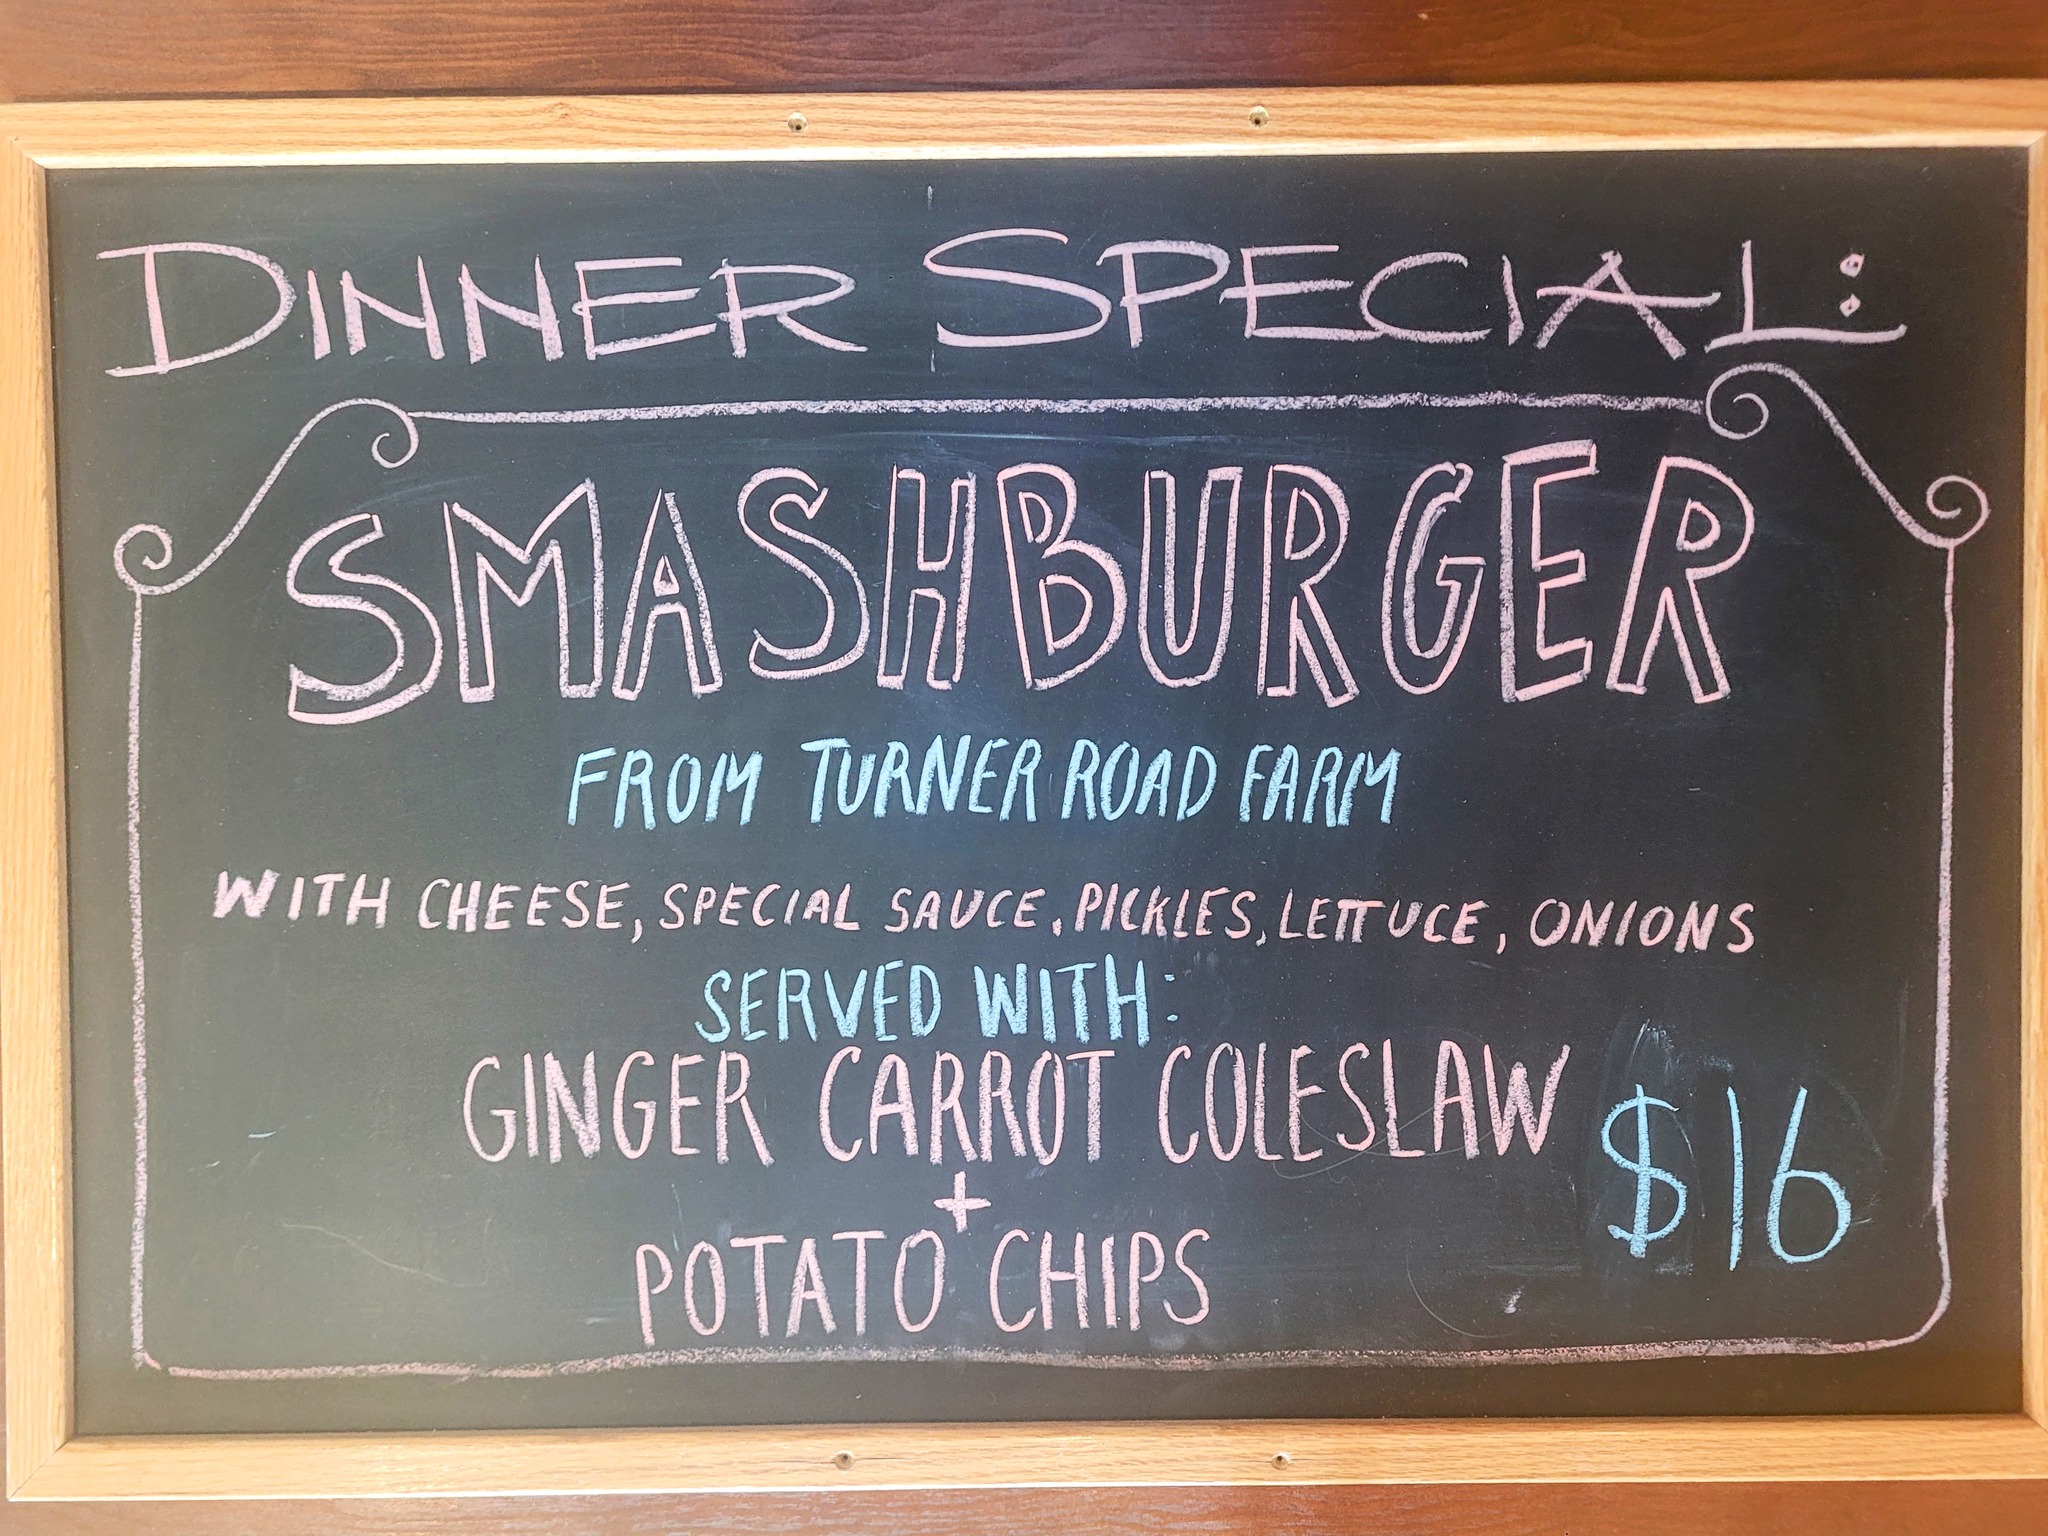 DINNER SPECIAL:
SMASHBURGER
FROM TURNER ROAD FARM
WITH CHEESE, SPECIAL SAUCE, PICKLES, LETTUCE, ONIONS
SERVED WITH:
GINGER CARROT COLESLAW
+
POTATO CHIPS
$16